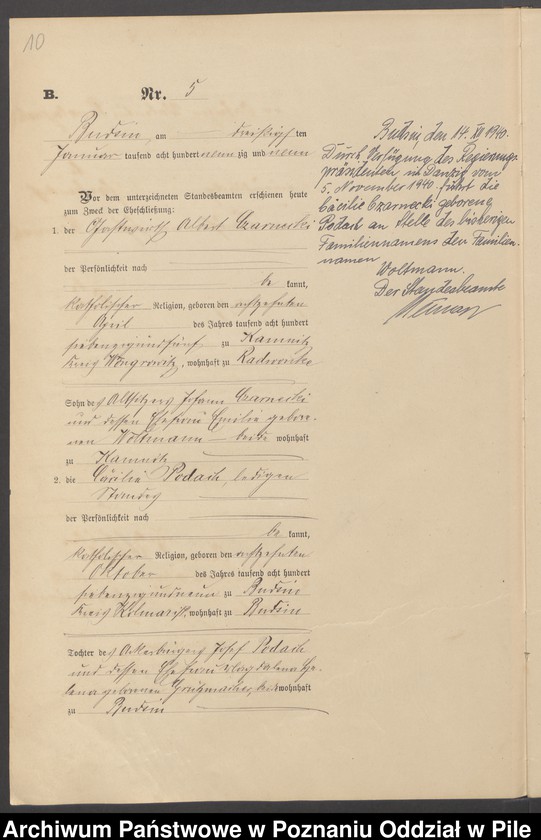 10
B. Nr. 5
Budsin, am dreißigsten
Januar tausend acht hundert neunzig und neun
Vor dem unterzeichneten Standesbeamten erschienen heute
zum Zweck der Eheschließung:
1. der Gastwirth Albert Czarnecki
der Persönlichkeit nach
be kannt,
katholischer Religion, geboren den achtzehnten
April des Jahres tausend acht hundert
siebenzig und fünf zu Kamnitz
Kreis Wongrowitz, wohnhaft zu
Sohn des Altsitzers Johann Czarnecki
und dessen Ehefrau Emilie gebore-
nen Woltmann beide wohnhaft
zu Kamnitz
2. die Cäcilie Podach, ledigen
Standes
der Persönlichkeit nach
be kannt,
katholischer Religion, geboren den achtzehnten
Oktober des Jahres tausend acht hundert
siebenzig und neun zu Budsin
Kreis Kolmar i/P, wohnhaft zu Budsin
Tochter des Ackerbürgers Josef Podach
und dessen Ehefrau Magdalena He-
lena geborenen Grützmacher, beide wohnhaft
zu Budsin
Budsin, den 14. XI 1940.
Durch Verfügung des Regierungs-
präsidenten in Danzig vom
5. November 1940 führt die
Cäcilie Czarnecki geborene
Podach an Stelle des bisherigen
Familiennamens den Familien-
namen
Woltmann.
Der Standesbeamte
Archiwum Państwowe w Poznaniu Oddział w Pile